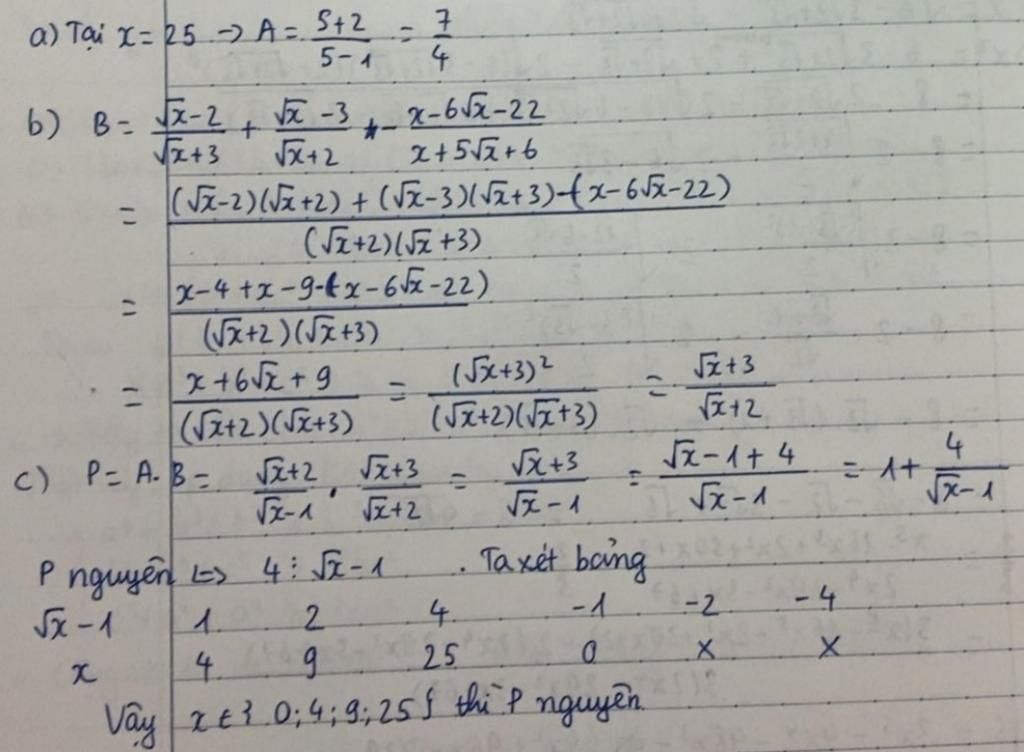 a) Tại x = 25 → A = (5+2)/(5-1) = 7/4
b) B = (√x-2)/(√x+3) + (√x-3)/(√x+2) - (x-6√x-22)/(x+5√x+6)
= ((√x-2)(√x+2) + (√x-3)(√x+3) - (x-6√x-22))/((√x+2)(√x+3))
= (x-4+x-9-(x-6√x-22))/((√x+2)(√x+3))
= (x+6√x+9)/((√x+2)(√x+3)) = (√x+3)²/((√x+2)(√x+3)) = (√x+3)/(√x+2)
c) P = A.B = (√x+2)/(√x-1) . (√x+3)/(√x+2) = (√x+3)/(√x-1) = (√x-1+4)/(√x-1) = 1 + 4/(√x-1)
P nguyên ⇔ 4 ⋮ √x-1 . Ta xét bảng
√x-1 1 2 4 -1 -2 -4
x 4 9 25 0 x x
Vậy x ∈ { 0; 4; 9; 25 } thì P nguyên